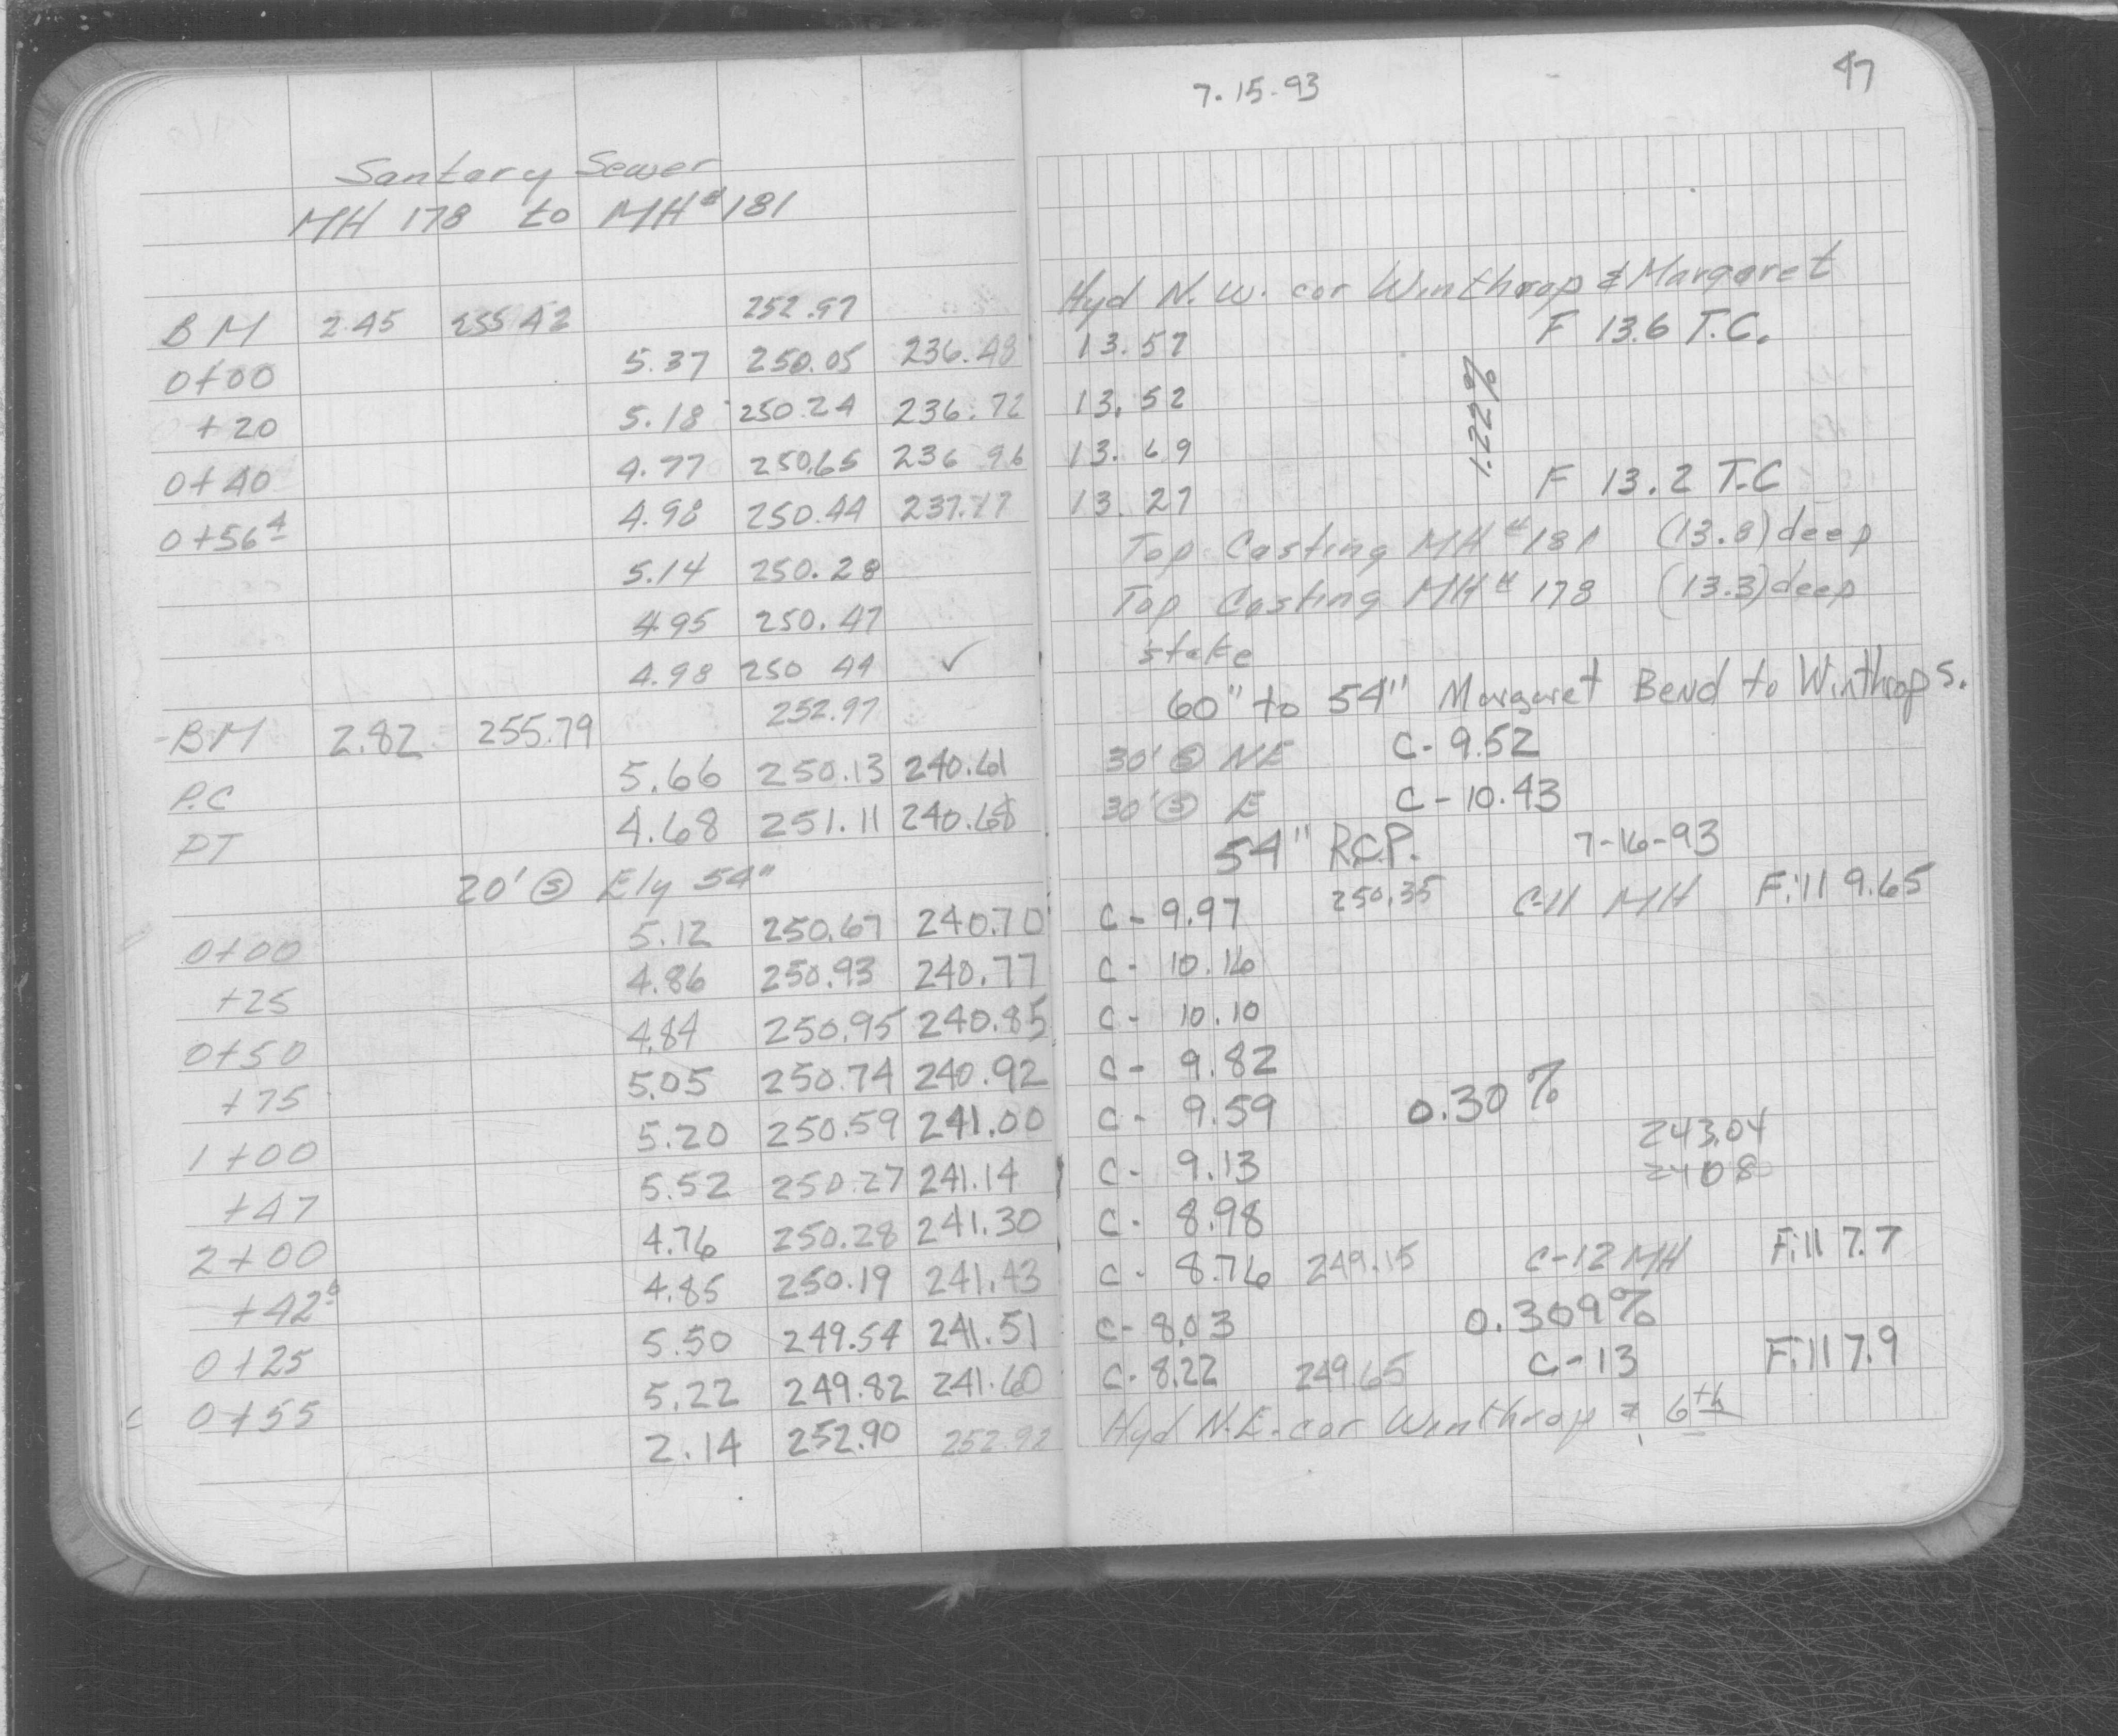 7-15-93
47
Santary Sewer
MH 178 to MH#181
BM 2.45 255.42 252.97 Hyd N.W. cor Winthrop & Margaret
0+00 5.37 250.05 236.48 13.57 F 13.6 T.C.
+20 5.18 250.24 236.72 13.52
1.22%
0+40 4.77 250.65 236.96 13.69
0+56⁴ 4.98 250.44 237.17 13.27 F 13.2 T.C
5.14 250.28 Top Casting MH#181 (13.8) deep
4.95 250.47 Top Casting MH#178 (13.3) deep
4.98 250.44 ✓ stake
252.97 60" to 54" Margaret Bend to Winthrop S.
BM 2.82 255.79
P.C 5.66 250.13 240.61 30' Ⓢ NE C-9.52
PT 4.68 251.11 240.68 30' Ⓢ E C-10.43
20' Ⓢ Ely 54" 54" R.C.P. 7-16-93
0+00 5.12 250.67 240.70 C-9.97 250.35 C-11 MH Fill 9.65
+25 4.86 250.93 240.77 C-10.16
0+50 4.84 250.95 240.85 C-10.10
+75 5.05 250.74 240.92 C-9.82
1+00 5.20 250.59 241.00 C-9.59 0.30%
243.04
+47 5.52 250.27 241.14 C-9.13
2+00 4.76 250.28 241.30 C-8.98
+42⁶ 4.85 250.19 241.43 C-8.76 249.15 C-12 MH Fill 7.7
0+25 5.50 249.54 241.51 C-8.03 0.309%
0+55 5.22 249.82 241.60 C-8.22 249.65 C-13 Fill 7.9
2.14 252.90 252.92 Hyd N.E. cor Winthrop & 6th